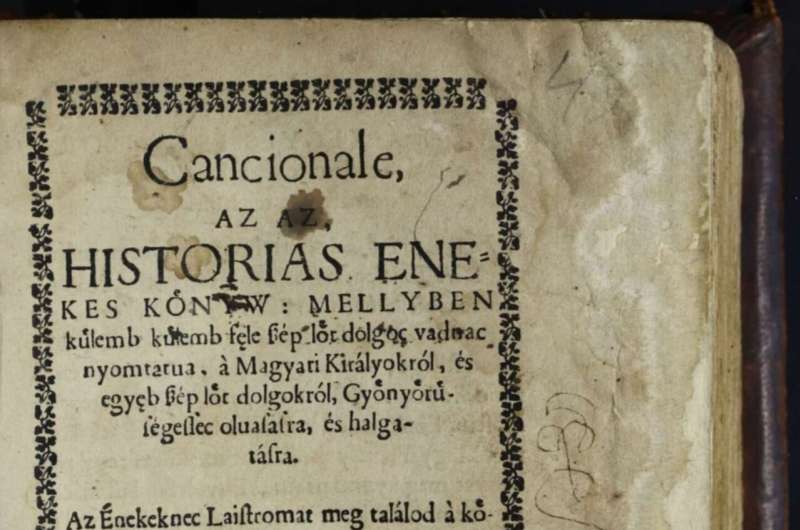 Cancionale,
AZ AZ,
HISTORIAS ENE-
KES KŐNYW: MELLYBEN
kůlemb kůlemb fęle ßép lőt dolgoc vadnac
nyomtatua, à Magyari Királyokról, és
egyęb ßép lőt dolgokról, Győnyőrů-
ſégeſſec oluaſaſra, és halga-
táſra.
Az Énekeknec Laiſtromat meg találod à kő-